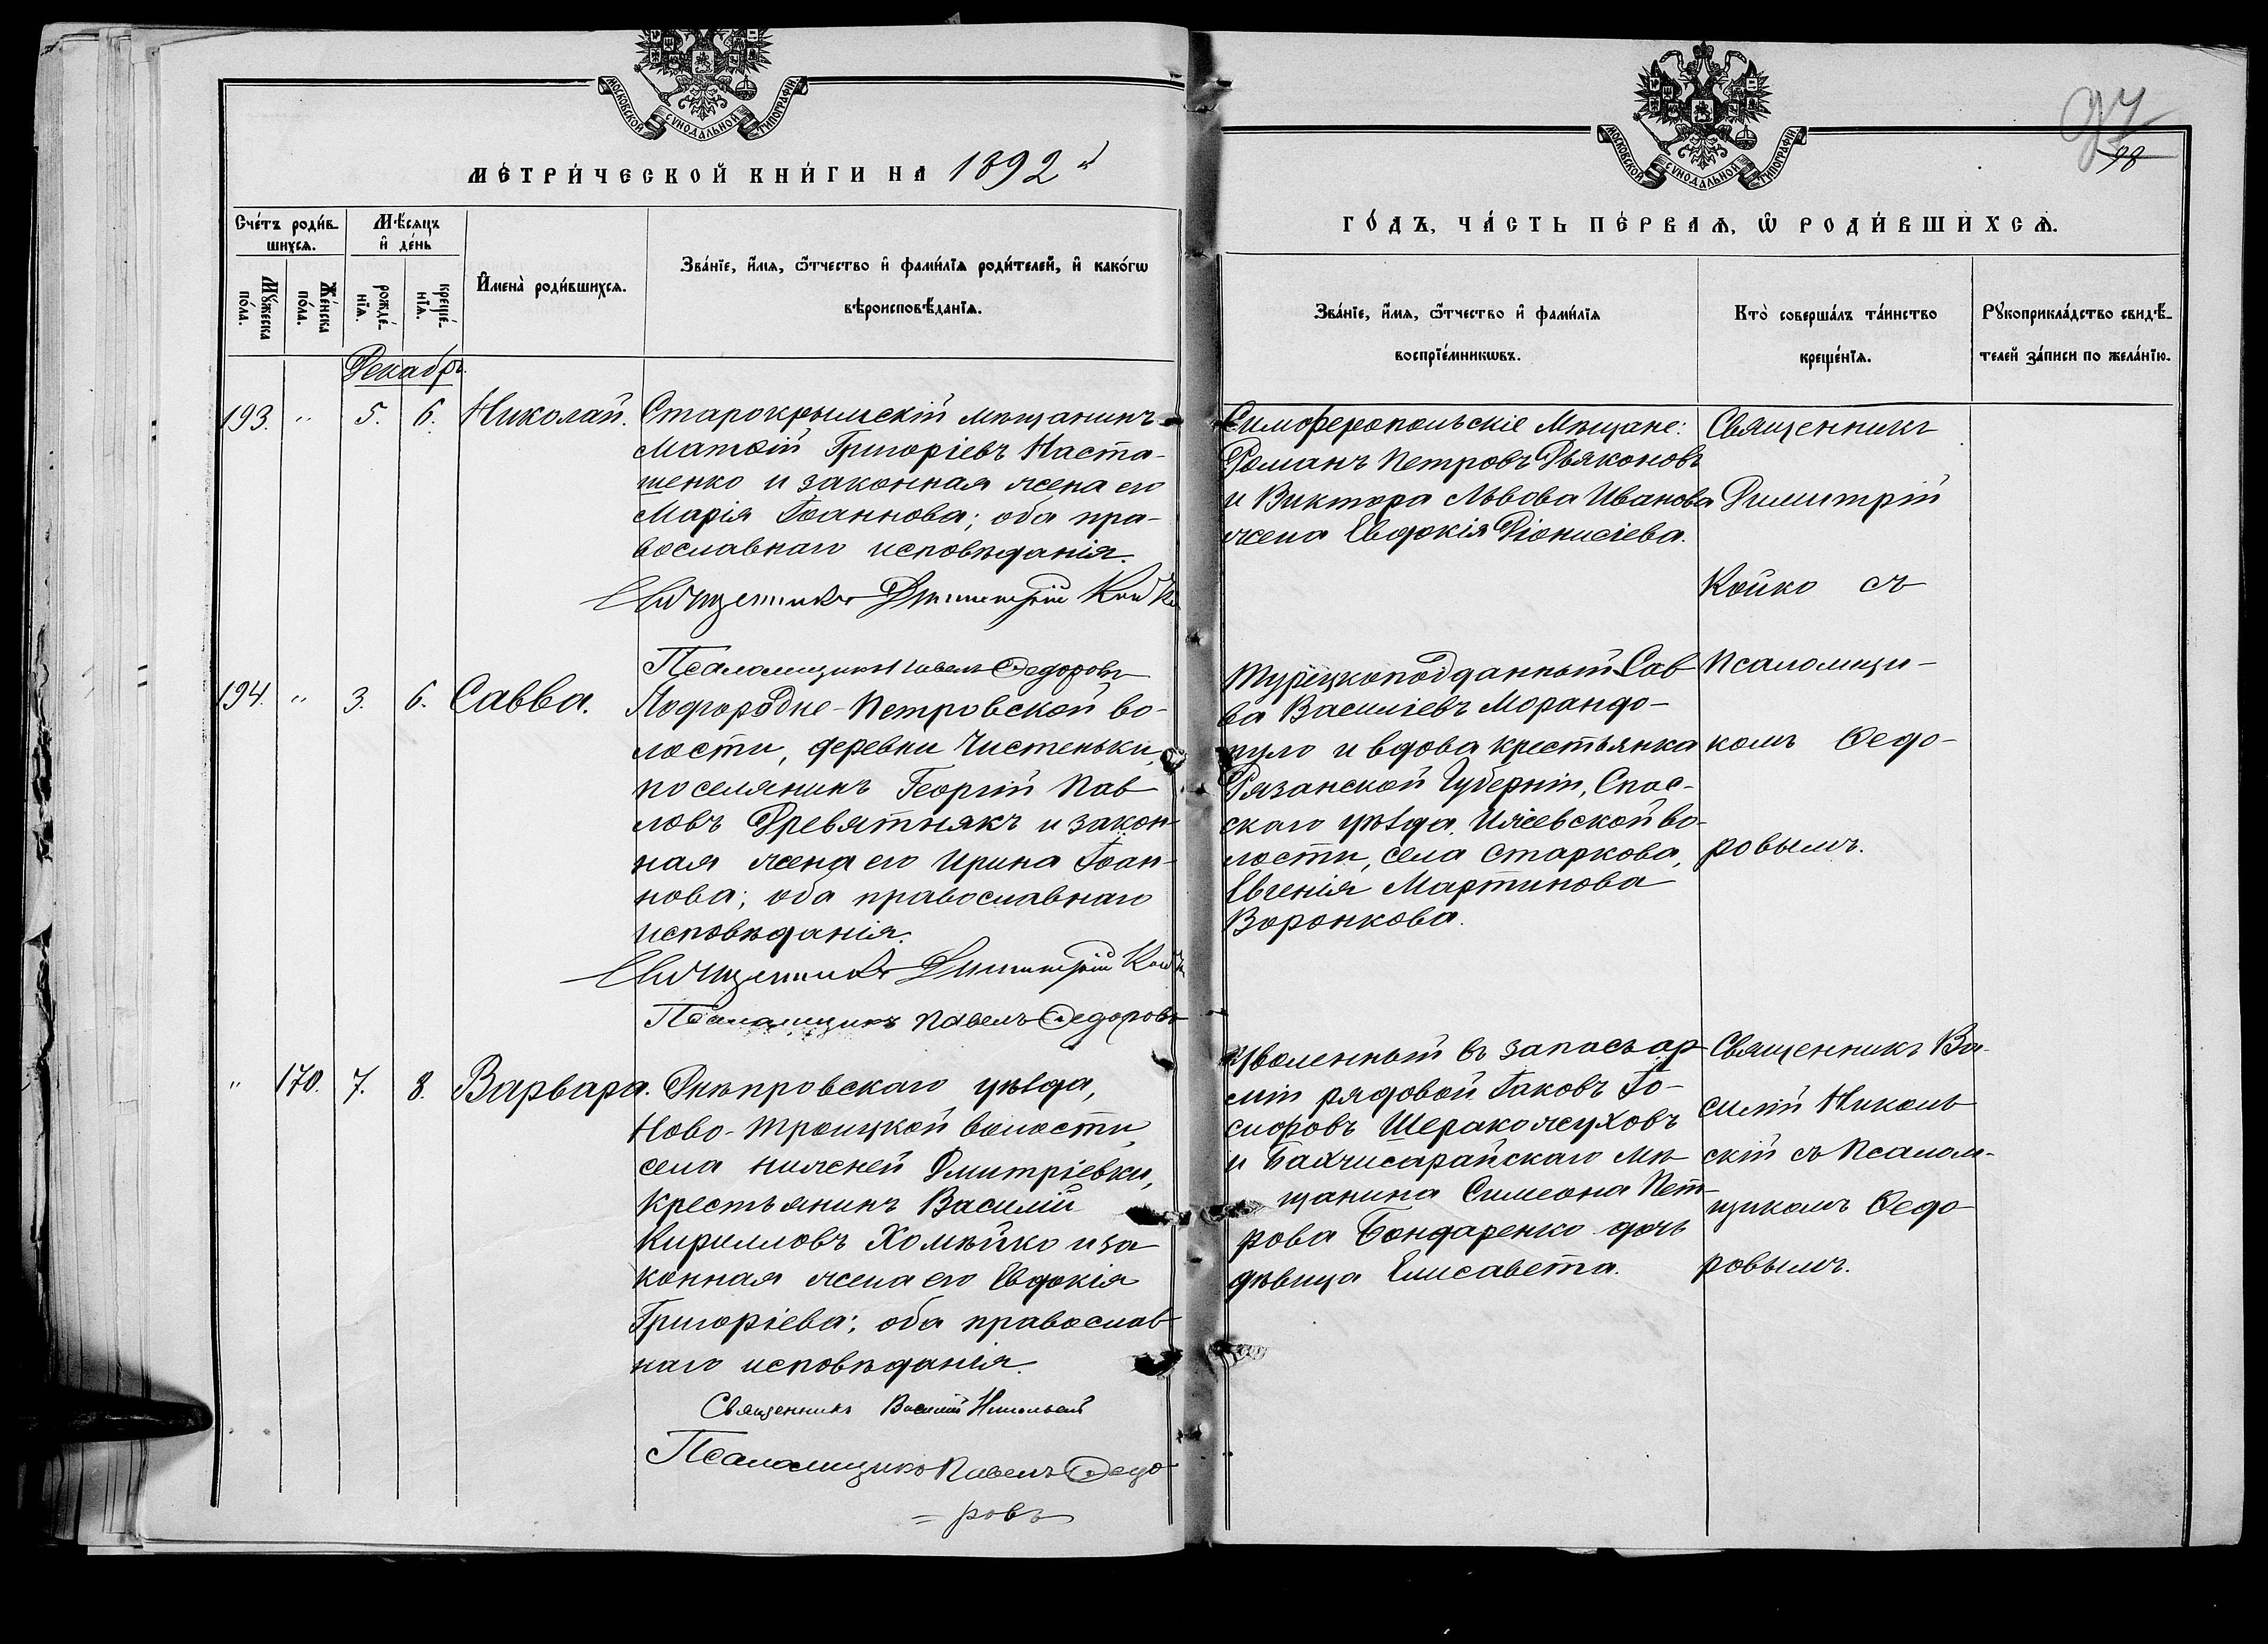 МОСКОВСКОЙ СУНОДАЛЬНОЙ ТИПОГРАФІИ
МЕТРИ́ЧЕСКОЙ КНИ́ГИ НА 1892 й
Сче́тъ роди́в-
шихсѧ.
Мѣ́сяцъ
и҆ де́нь
Мꙋ́жеска по́ла.
Же́нска по́ла.
рожде́-
нїѧ.
креще́-
нїѧ.
И҆мена̀ роди́вшихсѧ.
Зва́нїе, и҆́мѧ, ѻ҆́тчество и҆ фами́лїѧ роди́телей, и҆ како́гѡ
вѣроисповѣ́данїѧ.
Декабрь
193. " 5. 6. Николай.
Старокрымскій мѣщанинъ
Матѳій Григоріевъ Наста-
шенко и законная жена его
Марія Іоаннова; оба пра-
вославнаго исповѣданія.
Священникъ Димитрій Койко
Псаломщикъ Павелъ Ѳедоровъ
194. " 3. 6. Савва.
Подгородне-Петровской во-
лости, деревни Чистеньки,
поселянинъ Георгій Пав-
ловъ Древятнякъ и закон-
ная жена его Ирина Іоан-
нова; оба православнаго
исповѣданія.
Священникъ Димитрій Койко
Псаломщикъ Павелъ Ѳедоровъ
" 170. 7. 8. Варвара.
Днѣпровскаго уѣзда,
Ново-Троицкой волости,
села Нижней Дмитріевки,
крестьянинъ Василій
Кирилловъ Хомѣйко и за-
конная жена его Евдокія
Григоріева; оба православ-
наго исповѣданія.
Священникъ Василій Никольскій
Псаломщикъ Павелъ Ѳедо-
=ровъ
97
98
МОСКОВСКОЙ СУНОДАЛЬНОЙ ТИПОГРАФІИ
ГО́ДЪ, ЧА́СТЬ ПЕ́РВАѦ, Ѡ҆ РОДИ́ВШИХСѦ.
Зва́нїе, и҆́мѧ, ѻ҆́тчество и҆ фами́лїѧ
воспрїе́мникѡвъ.
Кто̀ соверша́лъ та́инство
креще́нїѧ.
Рꙋкоприкла́дство свидѣ́-
телей за́писи по жела́нїю.
Симферопольскіе Мѣщане:
Романъ Петровъ Дьяконовъ
и Виктора Львова Иванова
жена Евдокія Діонисіева.
Священникъ
Димитрій
Койко съ
Псаломщи-
комъ Ѳедо-
ровымъ.
Турецкоподданный Сав-
ва Василіевъ Морандо-
пуло и вдова крестьянка
Рязанской Губерніи, Спас-
скаго уѣзда, Ижевской во-
лости, села Старкова,
Евгенія Мартинова
Воронкова.
Уволенный въ запасъ ар-
міи рядовой Іаковъ Іо-
сифовъ Шеракожуховъ
и Бахчисарайскаго мѣ-
щанина Симеона Пет-
рова Бондаренко дочь
дѣвица Елисавета.
Священникъ Ва-
силій Николь-
скій съ Псалом-
щикомъ Ѳедо-
ровымъ.